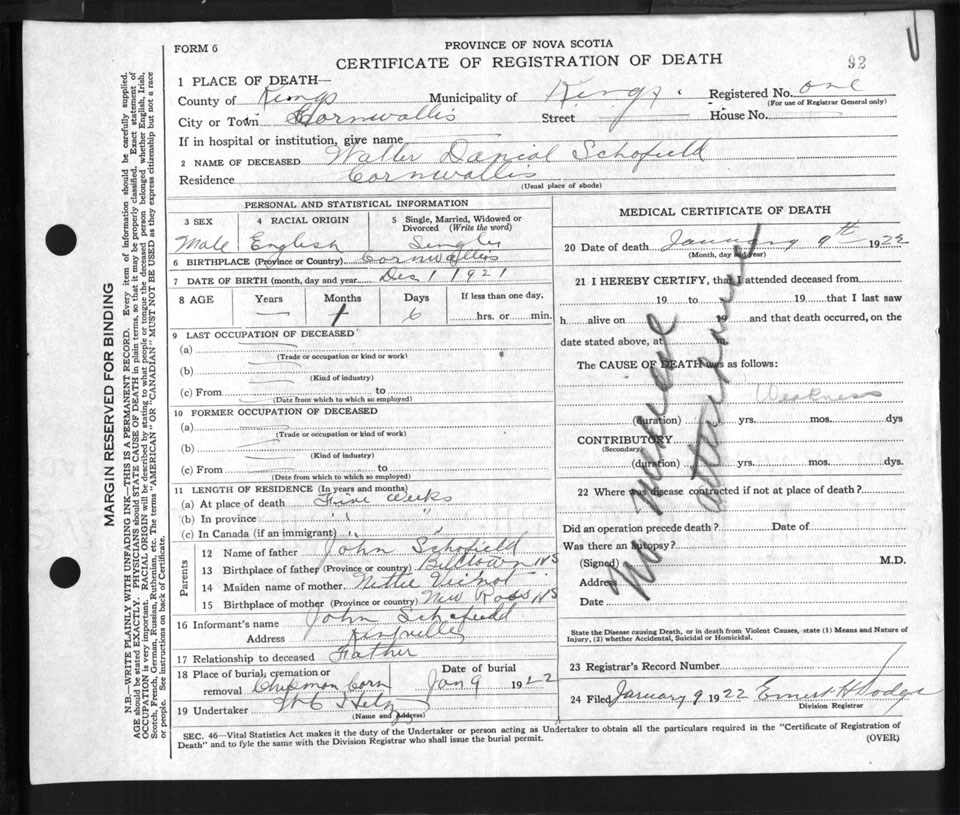 FORM 6
PROVINCE OF NOVA SCOTIA
92
CERTIFICATE OF REGISTRATION OF DEATH
1 PLACE OF DEATH—
County of Kings Municipality of Kings Registered No. one
(For use of Registrar General only)
City or Town Cornwallis Street House No.
If in hospital or institution, give name
2 NAME OF DECEASED Walter Danial Schofield
Residence Cornwallis
(Usual place of abode)
PERSONAL AND STATISTICAL INFORMATION
3 SEX 4 RACIAL ORIGIN 5 Single, Married, Widowed or Divorced (Write the word)
Male English Single
6 BIRTHPLACE (Province or Country) Cornwallis
7 DATE OF BIRTH (month, day and year) Dec 1 1921
8 AGE Years Months Days If less than one day,
— 1 6 hrs. or min.
9 LAST OCCUPATION OF DECEASED
(a)
(Trade or occupation or kind or work)
(b)
(Kind of industry)
(c) From to
(Date from which to which so employed)
10 FORMER OCCUPATION OF DECEASED
(a)
(Trade or occupation or kind of work)
(b)
(Kind of industry)
(c) From to
(Date from which to which so employed)
11 LENGTH OF RESIDENCE (In years and months)
(a) At place of death Five weeks
(b) In province " "
(c) In Canada (if an immigrant) " "
Parents
12 Name of father John Schofield
13 Birthplace of father (Province or country) Billtown NS
14 Maiden name of mother Nettie Veinot
15 Birthplace of mother (Province or country) New Ross NS
16 Informant's name John Schofield
Address Kentville
17 Relationship to deceased Father
18 Place of burial, cremation or Date of burial
removal Chipman Corn Jan 9 1922
19 Undertaker
(Name and Address)
MEDICAL CERTIFICATE OF DEATH
20 Date of death January 9th 1922
(Month, day and year)
21 I HEREBY CERTIFY, that I attended deceased from
19 to 19 that I last saw
h alive on 19 and that death occurred, on the
date stated above, at
The CAUSE OF DEATH was as follows:
Weakness
(duration) yrs. mos. dys
CONTRIBUTORY
(Secondary)
(duration) yrs. mos. dys.
22 Where was disease contracted if not at place of death?
Did an operation precede death? Date of
Was there an autopsy?
(Signed) M.D.
Address
Date
No medical
attendance
State the Disease causing Death, or in death from Violent Causes, state (1) Means and Nature of
Injury, (2) whether Accidental, Suicidal or Homicidal.
23 Registrar's Record Number
24 Filed January 9 1922 Ernest H Dodge
Division Registrar
SEC. 46—Vital Statistics Act makes it the duty of the Undertaker or person acting as Undertaker to obtain all the particulars required in the "Certificate of Registration of
Death" and to fyle the same with the Division Registrar who shall issue the burial permit.
(OVER)
MARGIN RESERVED FOR BINDING
N.B.—WRITE PLAINLY WITH UNFADING INK—THIS IS A PERMANENT RECORD. Every item of information should be carefully supplied.
AGE should be stated EXACTLY. PHYSICIANS should STATE CAUSE OF DEATH in plain terms, so that it may be properly classified. Exact statement of
OCCUPATION is very important. RACIAL ORIGIN will be described by stating to what people or tongue the deceased person belonged whether English, Irish,
Scotch, French, German, Russian, Ruthenian, etc. The terms "AMERICAN" OR "CANADIAN" MUST NOT BE USED as they express citizenship but not a race
or people. See instructions on back of Certificate.